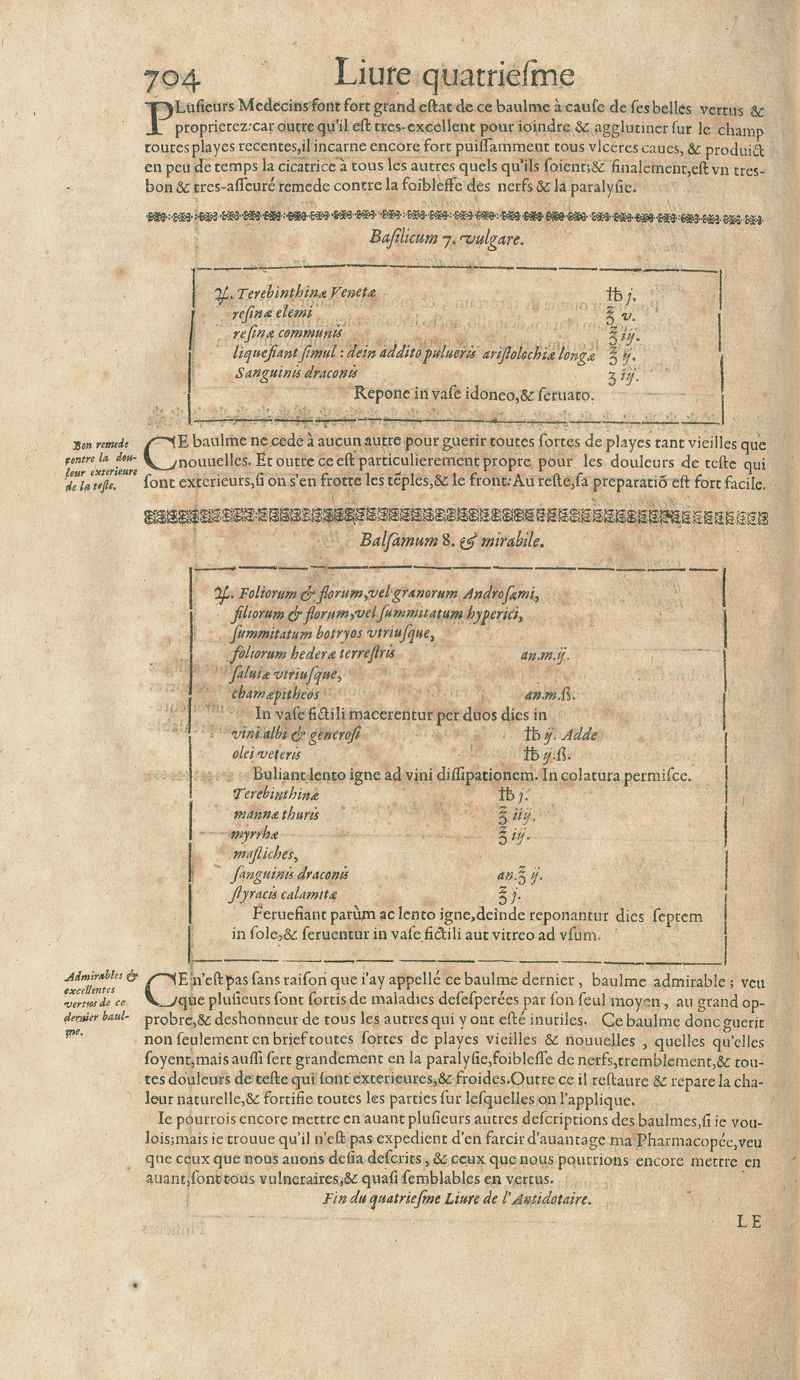 704 Liure quatrieſme
PLuſieurs Medecins font fort grand eſtat de ce baulme à cauſe de ſes belles vertus &
proprietez: car outre qu'il eſt tres-excellent pour ioindre & agglutiner ſur le champ
toutes playes recentes, il incarne encore fort puiſſamment tous vlceres caues, & produict
en peu de temps la cicatrice à tous les autres quels qu'ils ſoient; & finalement, eſt vn tres-
bon & tres-aſſeuré remede contre la foibleſſe des nerfs & la paralyſie.
Baſilicum 7. vulgare.
℞. Terebinthinæ Venetæ ℔ j.
reſinæ elemi ℥ v.
reſinæ communis ℥ iij.
liquefiant ſimul : dein addito pulueris ariſtolochiæ longæ ℥ ij.
Sanguinis draconis ʒ iij.
Repone in vaſe idoneo, & ſeruato.
Bon remede
contre la dou-
leur exterieure
de la teſte.
CE baulme ne cede à aucun autre pour guerir toutes ſortes de playes tant vieilles que
nouuelles. Et outre ce eſt particulierement propre pour les douleurs de teſte qui
ſont exterieurs, ſi on s'en frotte les tẽples, & le front: Au reſte, ſa preparatiõ eſt fort facile.
Balſamum 8. & mirabile.
℞. Foliorum & florum, vel granorum Androſæmi,
filiorum & florum, vel ſummitatum hyperici,
ſummitatum botryos vtriuſque,
foliorum hederæ terreſtris an.m.ij.
ſaluiæ vtriuſque,
chamæpitheos an.m.ß.
In vaſe fictili macerentur per duos dies in
vini albi & generoſi ℔ ij. Adde
olei veteris ℔ ij.ß.
Buliant lento igne ad vini diſſipationem. In colatura permiſce.
Terebinthinæ ℔ j.
mannæ thuris ℥ iiij.
myrrhæ ℥ iij.
maſtiches,
ſanguinis draconis an. ℥ ij.
ſtyracis calamitæ ℥ j.
Feruefiant parùm ac lento igne, deinde reponantur dies ſeptem
in ſole, & ſeruentur in vaſe fictili aut vitreo ad vſum.
Admirables &
excellentes
vertus de ce
dernier baul-
me.
CE n'eſt pas ſans raiſon que i'ay appellé ce baulme dernier , baulme admirable ; veu
que pluſieurs ſont ſortis de maladies deſeſperées par ſon ſeul moyen , au grand op-
probre, & deshonneur de tous les autres qui y ont eſté inutiles. Ce baulme donc guerit
non ſeulement en brief toutes ſortes de playes vieilles & nouuelles , quelles qu'elles
ſoyent, mais auſſi ſert grandement en la paralyſie, foibleſſe de nerfs, tremblement, & tou-
tes douleurs de teſte qui ſont exterieures, & froides. Outre ce il reſtaure & repare la cha-
leur naturelle, & fortifie toutes les parties ſur leſquelles on l'applique.
Ie pourrois encore mettre en auant pluſieurs autres deſcriptions des baulmes, ſi ie vou-
lois; mais ie trouue qu'il n'eſt pas expedient d'en farcir d'auantage ma Pharmacopée, veu
que ceux que nous auons deſia deſcrits , & ceux que nous pourrions encore mettre en
auant, ſont tous vulneraires, & quaſi ſemblables en vertus.
Fin du quatrieſme Liure de l'Antidotaire.
LE